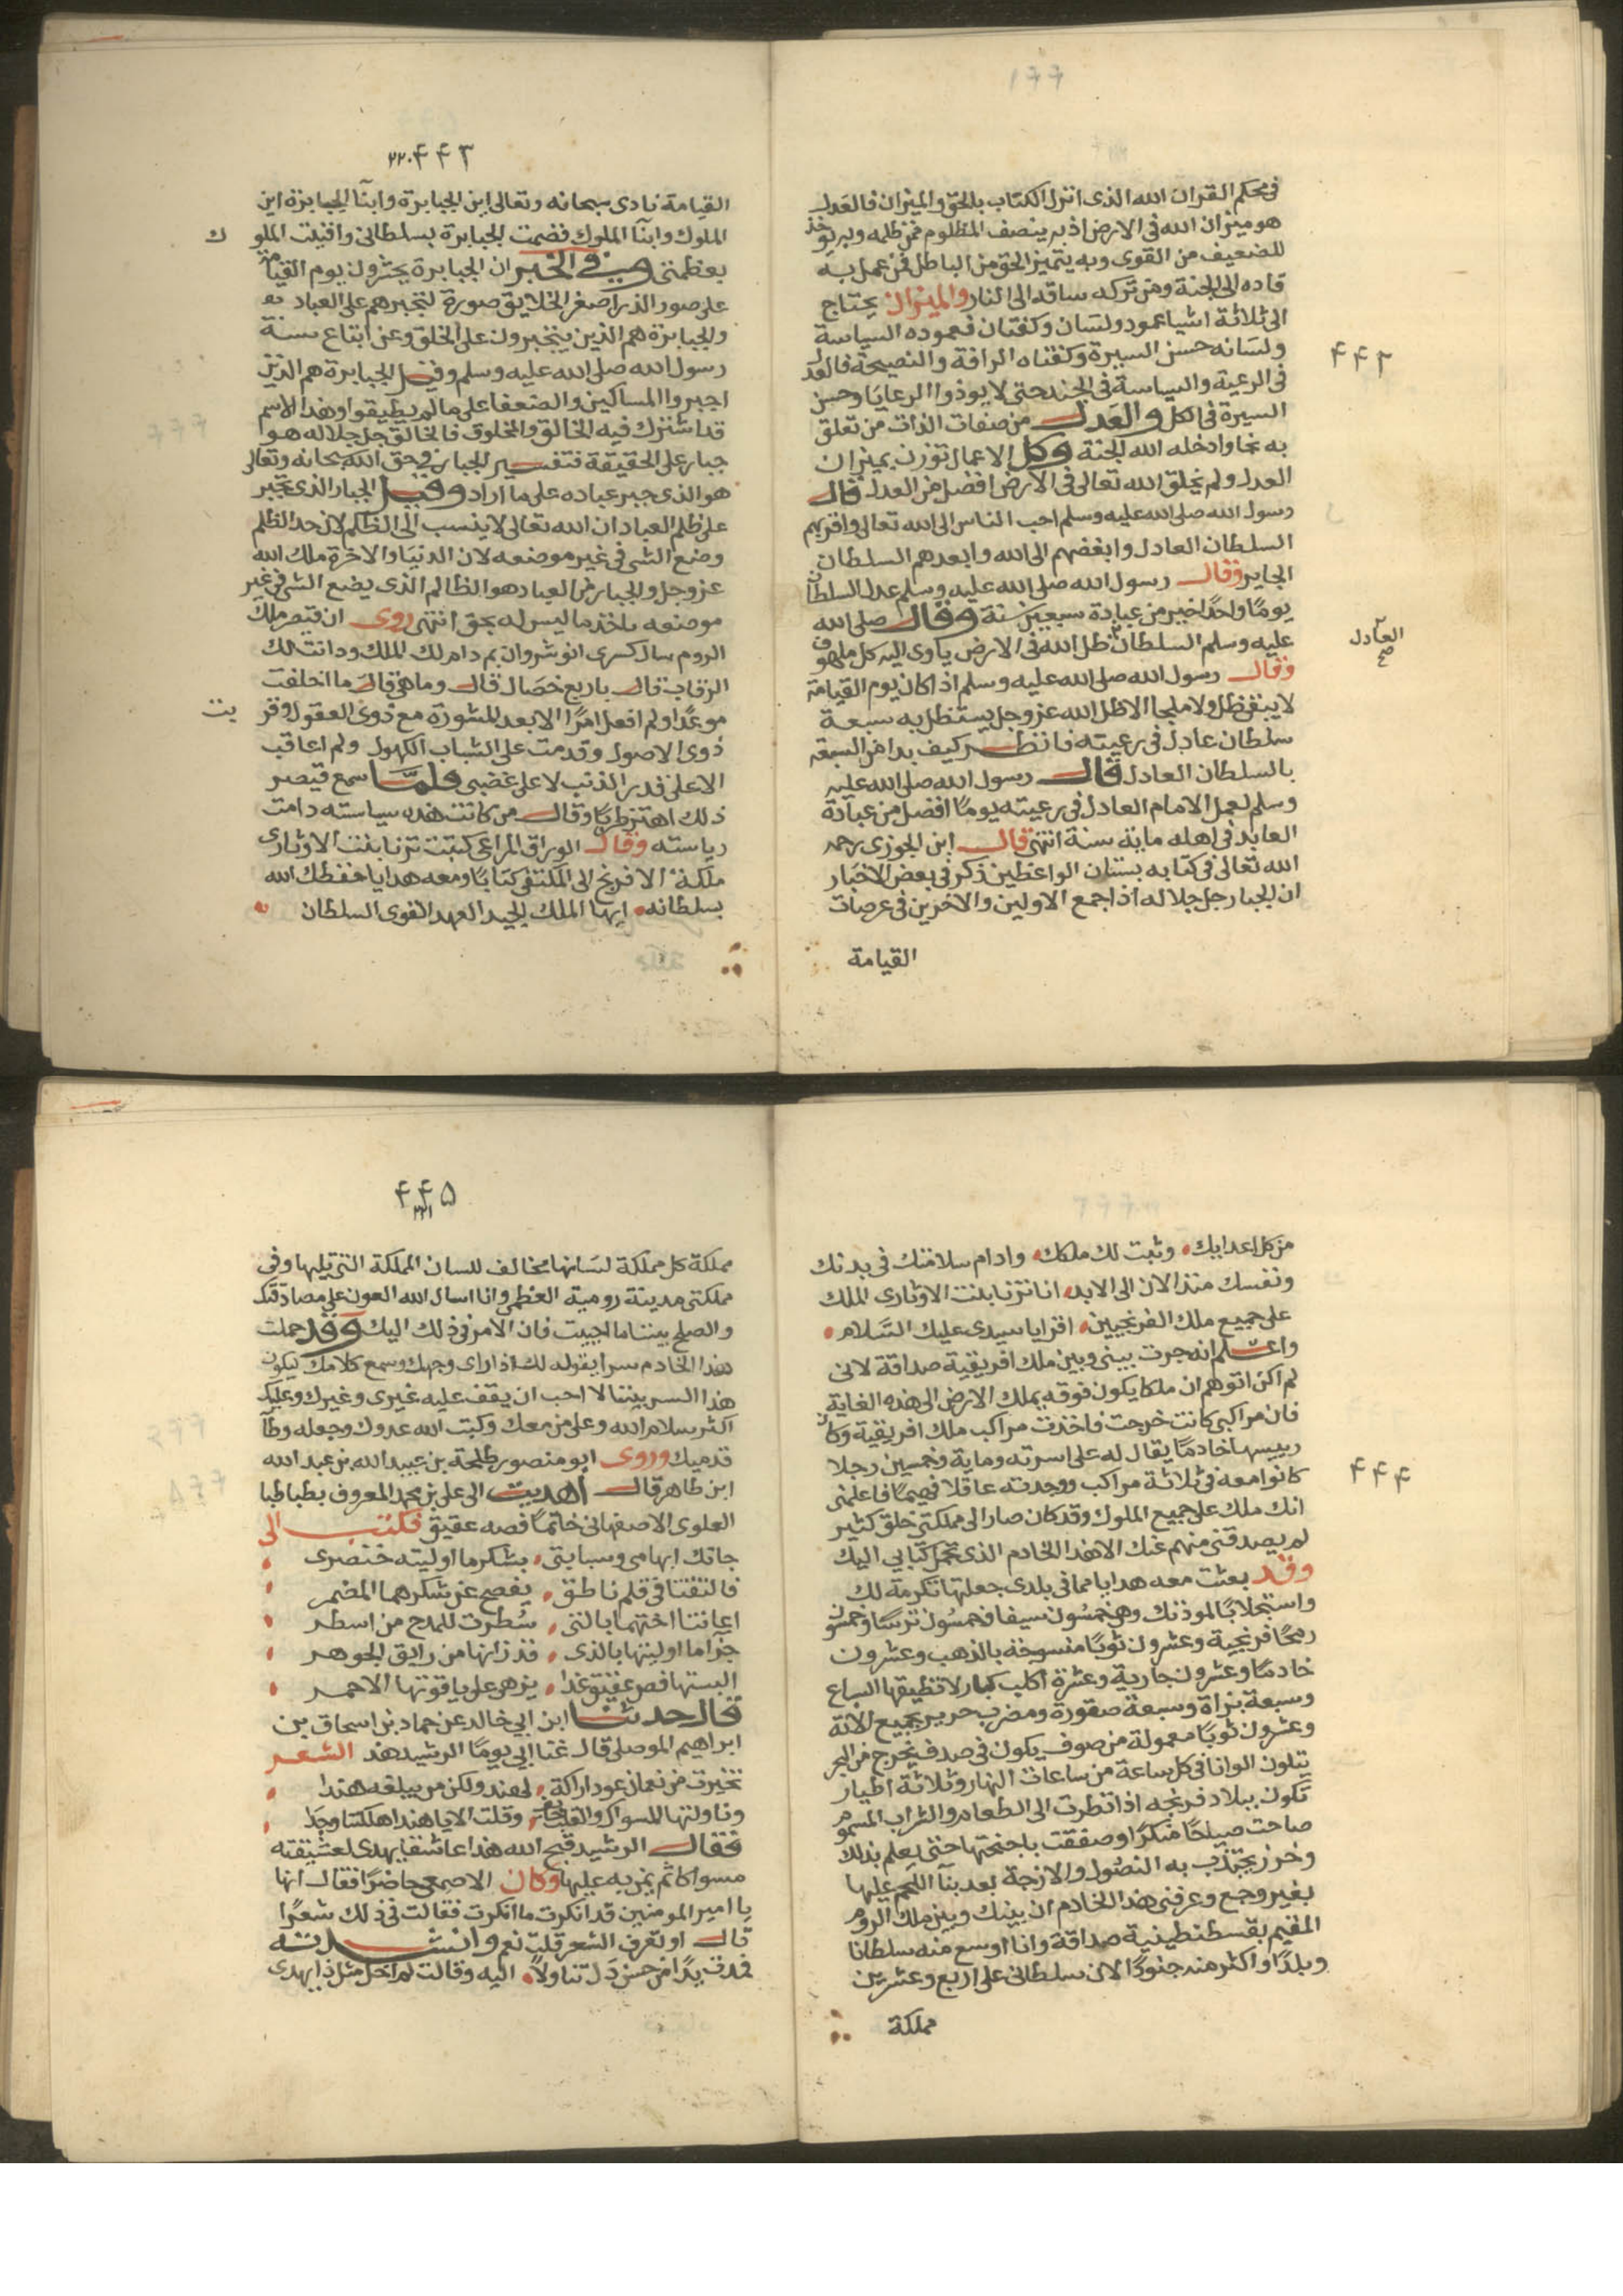 ١٦٦
فى محكم القران الله الذى انزل الكتاب بالحق والميزان فالعدل
هو ميزان الله فى الارض اذ به ينصف المظلوم من ظلمه وبه يوخذ
للضعيف من القوى وبه يتميز الحق من الباطل فمن عمل به
قاده الى الجنة ومن تركه ساقه الى النار والميزان يحتاج
الى ثلاثة اشيا عمود ولسان وكفتان فعموده السياسة
ولسانه حسن السيرة وكفتاه الرافة والنصيحة فالعدل
٤٤٢
فى الرعية والسياسة فى الجند حتى لا يوذوا الرعايا وحسن
السيرة فى الكل والعدل من صفات الذات من تعلق
به نجا وادخله الله الجنة وكل الاعمال توزن بميزان
العدل ولم يخلق الله تعالى فى الارض افضل من العدل قال
رسول الله صلى الله عليه وسلم احب الناس الى الله تعالى واقربهم
السلطان العادل وابغضهم الى الله وابعدهم السلطان
الجاير وقال رسول الله صلى الله عليه وسلم عدل السلطان
يومًا واحدًا خير من عبادة سبعين سنة وقال صلى الله
عليه وسلم السلطان ظل الله فى الارض ياوى اليه كل ملهوف
العادل صح
وقال رسول الله صلى الله عليه وسلم اذا كان يوم القيامة
لا يبقى ظل ولا ملجا الا ظل الله عز وجل يستظل به سبعة
سلطان عادل فى رعيته فانظر كيف بدا من السبعة
بالسلطان العادل قال رسول الله صلى الله عليه
وسلم لعمل الامام العادل فى رعيته يومًا افضل من عبادة
العابد فى اهله ماية سنة انتهى قال ابن الجوزى رحمه
الله تعالى فى كتابه بستان الواعظين ذكر فى بعض الاخبار
ان الجبار جل جلاله اذا جمع الاولين والاخرين فى عرصات
القيامة
٤٤٣ ٢٢٠
القيامة نادى سبحانه وتعالى اين الجبابرة وابنآ الجبابرة اين
الملوك وابنآ الملوك قصمت الجبابرة بسلطانى وافنيت الملو ك
بعظمتى وفى الخبر ان الجبابرة يحشرون يوم القيامة
على صور الذر اصغر الخلايق صورة لتجبرهم على العباد
والجبابرة هم الذين يتجبرون على الخلق وعن اتباع سنة
رسول الله صلى الله عليه وسلم وقيل الجبابرة هم الذين
اجبروا المساكين والضعفا على ما لم يطيقوا وهذا الاسم
قد اشترك فيه الخالق والمخلوق فالخالق جل جلاله هو
جبار على الحقيقة فتفسير الجبار فى حق الله سبحانه وتعالى
هو الذى جبر عباده على ما اراد وقيل الجبار الذى تجبر
على ظلم العباد ان الله تعالى لا ينسب الى الظلم لان حد الظلم
وضع الشى فى غير موضعه لان الدنيا والاخرة ملك الله
عز وجل والجبار من العباد هو الظالم الذى يضع الشى فى غير
موضعه ياخذ ما ليس له بحق انتهى روى ان قيصر ملك
الروم سال كسرى انوشروان بم دام لك الملك ودانت لك
الرقاب قال باربع خصال قال وما هى قال ما اخلفت
موعدًا ولم افعل امرًا الا بعد المشورة مع ذوى العقول وقر بت
ذوى الاصول وقدمت على الشباب الكهول ولم اعاقب
الا على قدر الذنب لا على غضبى فلمَّا سمع قيصر
ذلك اهتز طربًا وقال من كانت هذه سياسته دامت
رياسته وقال الوراق المراغى كتبت تزنا بنت الاوتارى
ملكة الافرنج الى المكتفى كتابًا ومعه هدايا حفظك الله
بسلطانه ايها الملك الجيد العهد القوى السلطان
من كل اعدايك وثبت لك ملكك وادام سلامتك فى بدنك
ونفسك منذ الان الى الابد انا تزنا بنت الاوتارى الملك
على جميع ملك الفرنجيين اقرا يا سيدى عليك السَّلام
واعلم انه جرت بينى وبين ملك افريقية صداقة لانى
لم اكن اتوهم ان ملكا يكون فوقه يملك الارض الى هذه الغاية
فان مراكبى كانت خرجت فاخذت مراكب ملك افريقية وكان
رييسها خادمًا يقال له على اسرته وماية وخمسين رجلا
٤٤٤
كانوا معه فى ثلاثة مراكب ووجدته عاقلا فهيمًا فاعلمنى
انك ملك على جميع الملوك وقد كان صار الى مملكتى خلق كثير
لم يصدقنى منهم عنك الا هذا الخادم الذى يحمل كتابى اليك
وقد بعثت معه هدايا مما فى بلدى جعلتها تكرمة لك
واستجلابًا لمودتك وهى خمسُون سيفا وخمسُون ترسًا وخمسُون
رمحًا فرنجية وعشرون ثوبًا منسوجة بالذهب وعشرون
خادمًا وعشرون جارية وعشرة اكلب كبار لا تطيقها السباع
وسبعة بزاة وسبعة صقورة ومضرب حرير بجميع الاته
وعشرون ثوبًا معمولة من صوف يكون فى صدف يخرج من البحر
يتلون الوانا فى كل ساعة من ساعات النهار وثلاثة اطيار
تكون ببلاد فرنجه اذا نظرت الى الطعام والشراب المسموم
صاحت صياحًا منكرًا وصفقت باجنحتها حتى يعلم بذلك
وخرز يجتذب به النصُول والازجة بعد بنآ اللحم عليها
بغير وجع وعرفنى هذا الخادم ان بينك وبين ملك الروم
المقيم بقسطنطينية صداقة وانا اوسع منه سلطانا
وبلدًا واكثر منه جنودًا لان سلطانى على اربع وعشرين
مملكة
٤٤٥
٢٢١
مملكة كل مملكة لسَانها مخالف للسان المملكة التى تليها وفى
مملكتى مدينة رومية العظمى وانا اسال الله العون على مصادقتك
والصلح بيننا ما احببت فان الامر فى ذلك اليك وقد حملت
هذا الخادم سرا يقوله لك اذا راى وجهك وسمع كلامك ليكون
هذا السر بيننا لا احب ان يقف عليه غيرى وغيرك وعليك
اكثر سلام الله وعلى من معك وكبت الله عدوك وجعله وطآ
قدميك وروى ابو منصور طلحة بن عبيد الله بن عبد الله
ابن طاهر قال اهديت الى على بن محمد المعروف بطباطبا
العلوى الاصفهانى خاتمًا فصه عقيق فكتب الى
جاتك ابهامى وسبابتى بشكر ما اوليته خنصرى
فالتفتا فى قلم ناطق يفصح عن شكرهما المضمر
اعانتا اختهما بالتى سُطرت للمدح من اسطر
جزآ ما اوليتها بالذى قد زانها من رايق الجوهر
البستها فص عقيق غدا يزهى على ياقوتها الاحمر
قال حدثنا ابن ابى خالد عن حماد بن اسحاق بن
ابراهيم الموصلى قال غنا ابى يومًا الرشيد هذ الشعر
تخيرت من نعمان عود اراكة لهند ولكن من يبلغه هندا
وناولتها المسواك والقلب خايف وقلت الا يا هند اهلكتنا وجدا
فقال الرشيد قبح الله هذا عاشقا يهدى لعشيقته
مسواكا ثم يمن به عليها وكان الاصمعى حاضرًا فقال انها
يا امير المومنين قد انكرت ما انكرت فقالت فى ذلك شعرًا
قال او تعرف الشعر قلت نعم وانشدته
فمدت يدًا من حسن دَل تناولًا اليه وقالت لم اخل مثل ذا يهدى